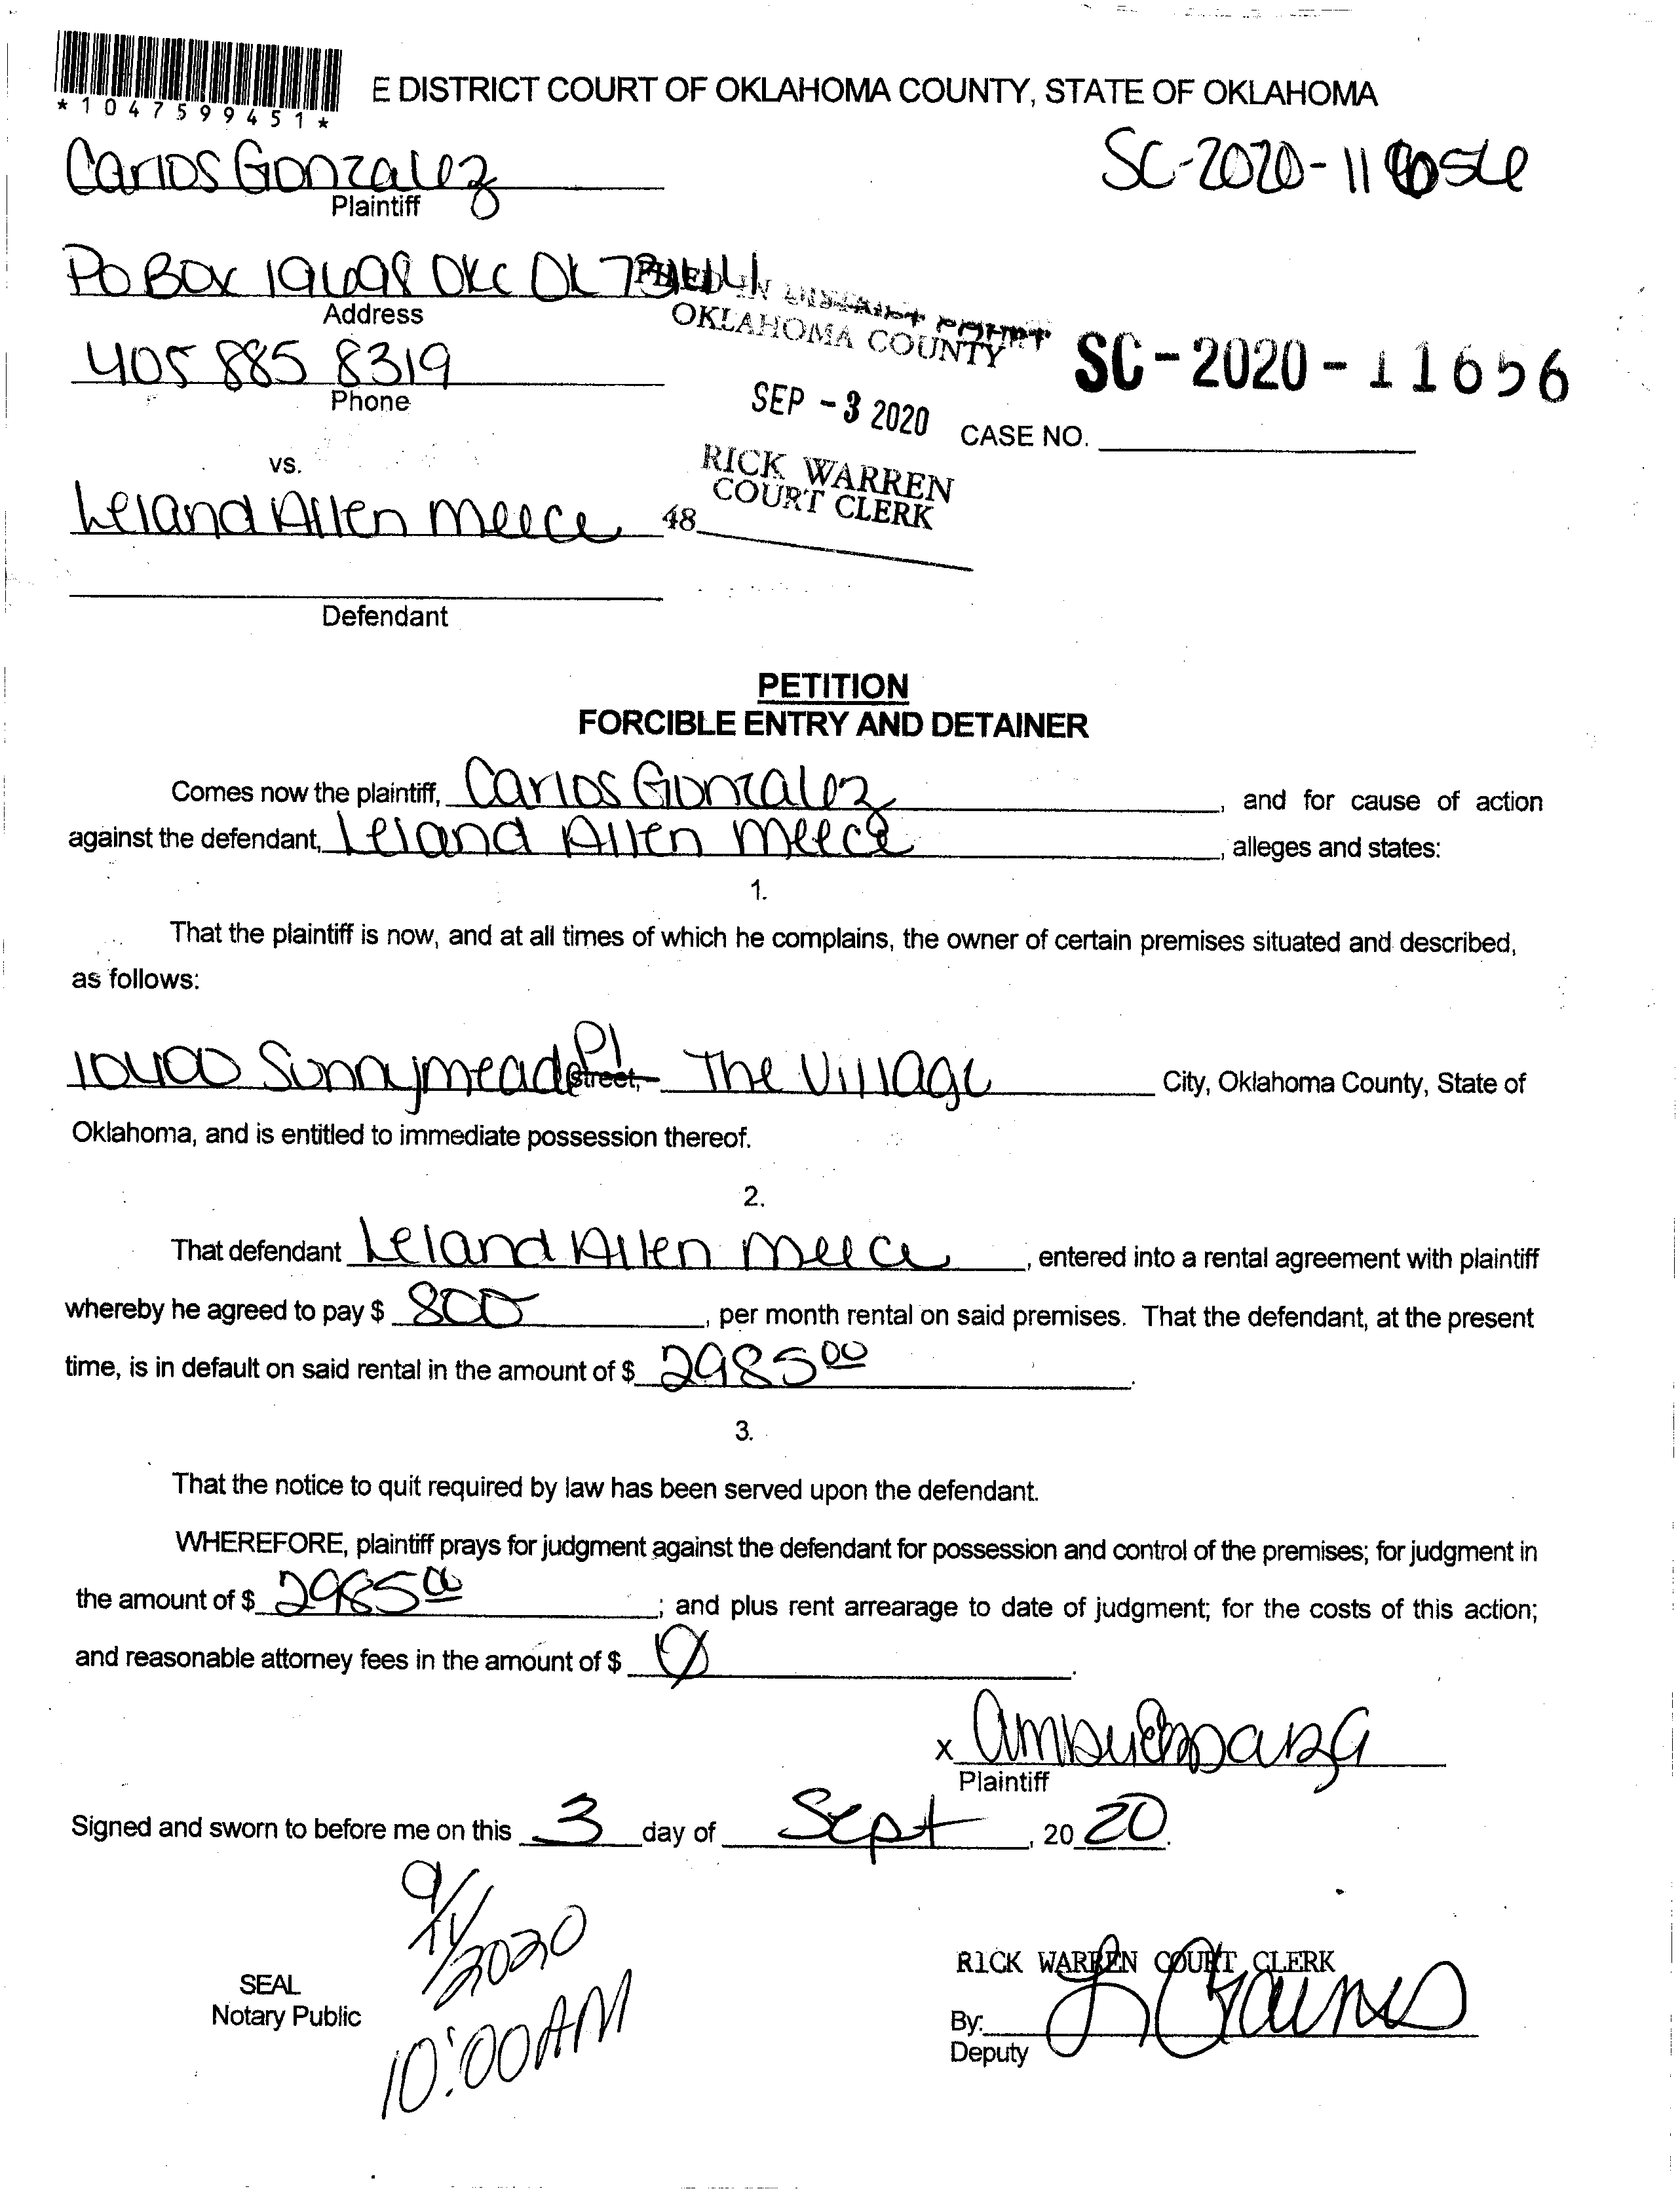 E DISTRICT COURT OF OKLAHOMA COUNTY, STATE OF OKLAHOMA
*1047599451*
Carlos Gonzalez
SC-2020-11656
Plaintiff
PO BOX 19698 OKC OK 73144
FILED IN DISTRICT COURT
Address
OKLAHOMA COUNTY
SC-2020-11656
405 885 8319
Phone
SEP -3 2020
CASE NO.
vs.
RICK WARREN
COURT CLERK
Leland Allen Meece
48
Defendant
PETITION
FORCIBLE ENTRY AND DETAINER
Comes now the plaintiff, Carlos Gonzalez, and for cause of action
against the defendant, Leland Allen Meece, alleges and states:
1.
That the plaintiff is now, and at all times of which he complains, the owner of certain premises situated and described,
as follows:
10400 Sunnymeade Pl street, The Village City, Oklahoma County, State of
Oklahoma, and is entitled to immediate possession thereof.
2.
That defendant Leland Allen Meece, entered into a rental agreement with plaintiff
whereby he agreed to pay $ 800, per month rental on said premises. That the defendant, at the present
time, is in default on said rental in the amount of $ 2985 00.
3.
That the notice to quit required by law has been served upon the defendant.
WHEREFORE, plaintiff prays for judgment against the defendant for possession and control of the premises; for judgment in
the amount of $ 2985 00; and plus rent arrearage to date of judgment; for the costs of this action;
and reasonable attorney fees in the amount of $ 0.
x
Plaintiff
Signed and sworn to before me on this 3 day of Sept, 20 20.
2020
10:00AM
SEAL
Notary Public
RICK WARREN COURT CLERK
By:
Deputy